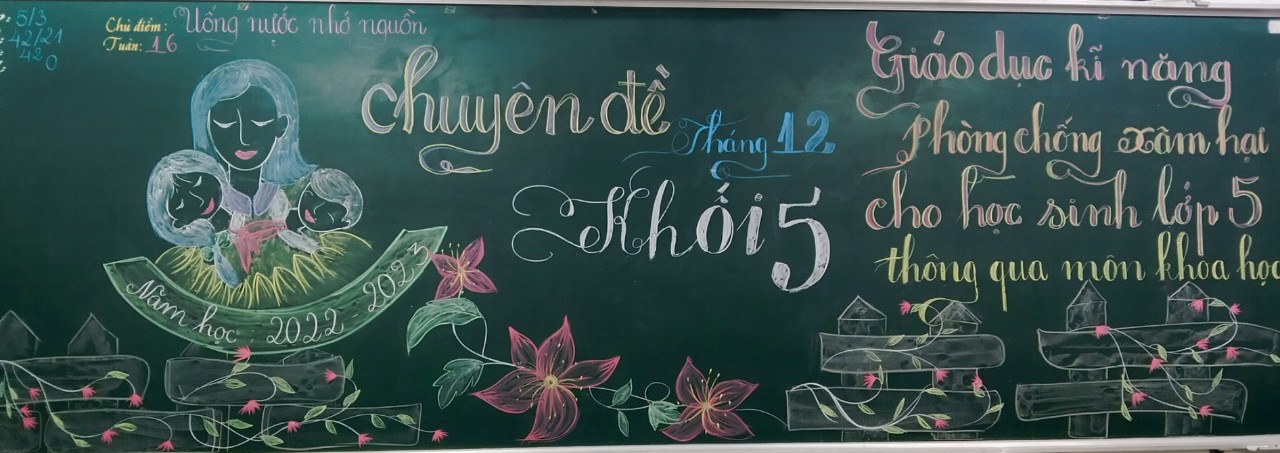 : 5/3
: 42/21
: 420
Chủ điểm: Uống nước nhớ nguồn
Tuần: 16
Chuyên đề
Tháng 12
Khối 5
Năm học 2022 2023
Giáo dục kĩ năng
Phòng chống xâm hại
cho học sinh lớp 5
thông qua môn khoa học